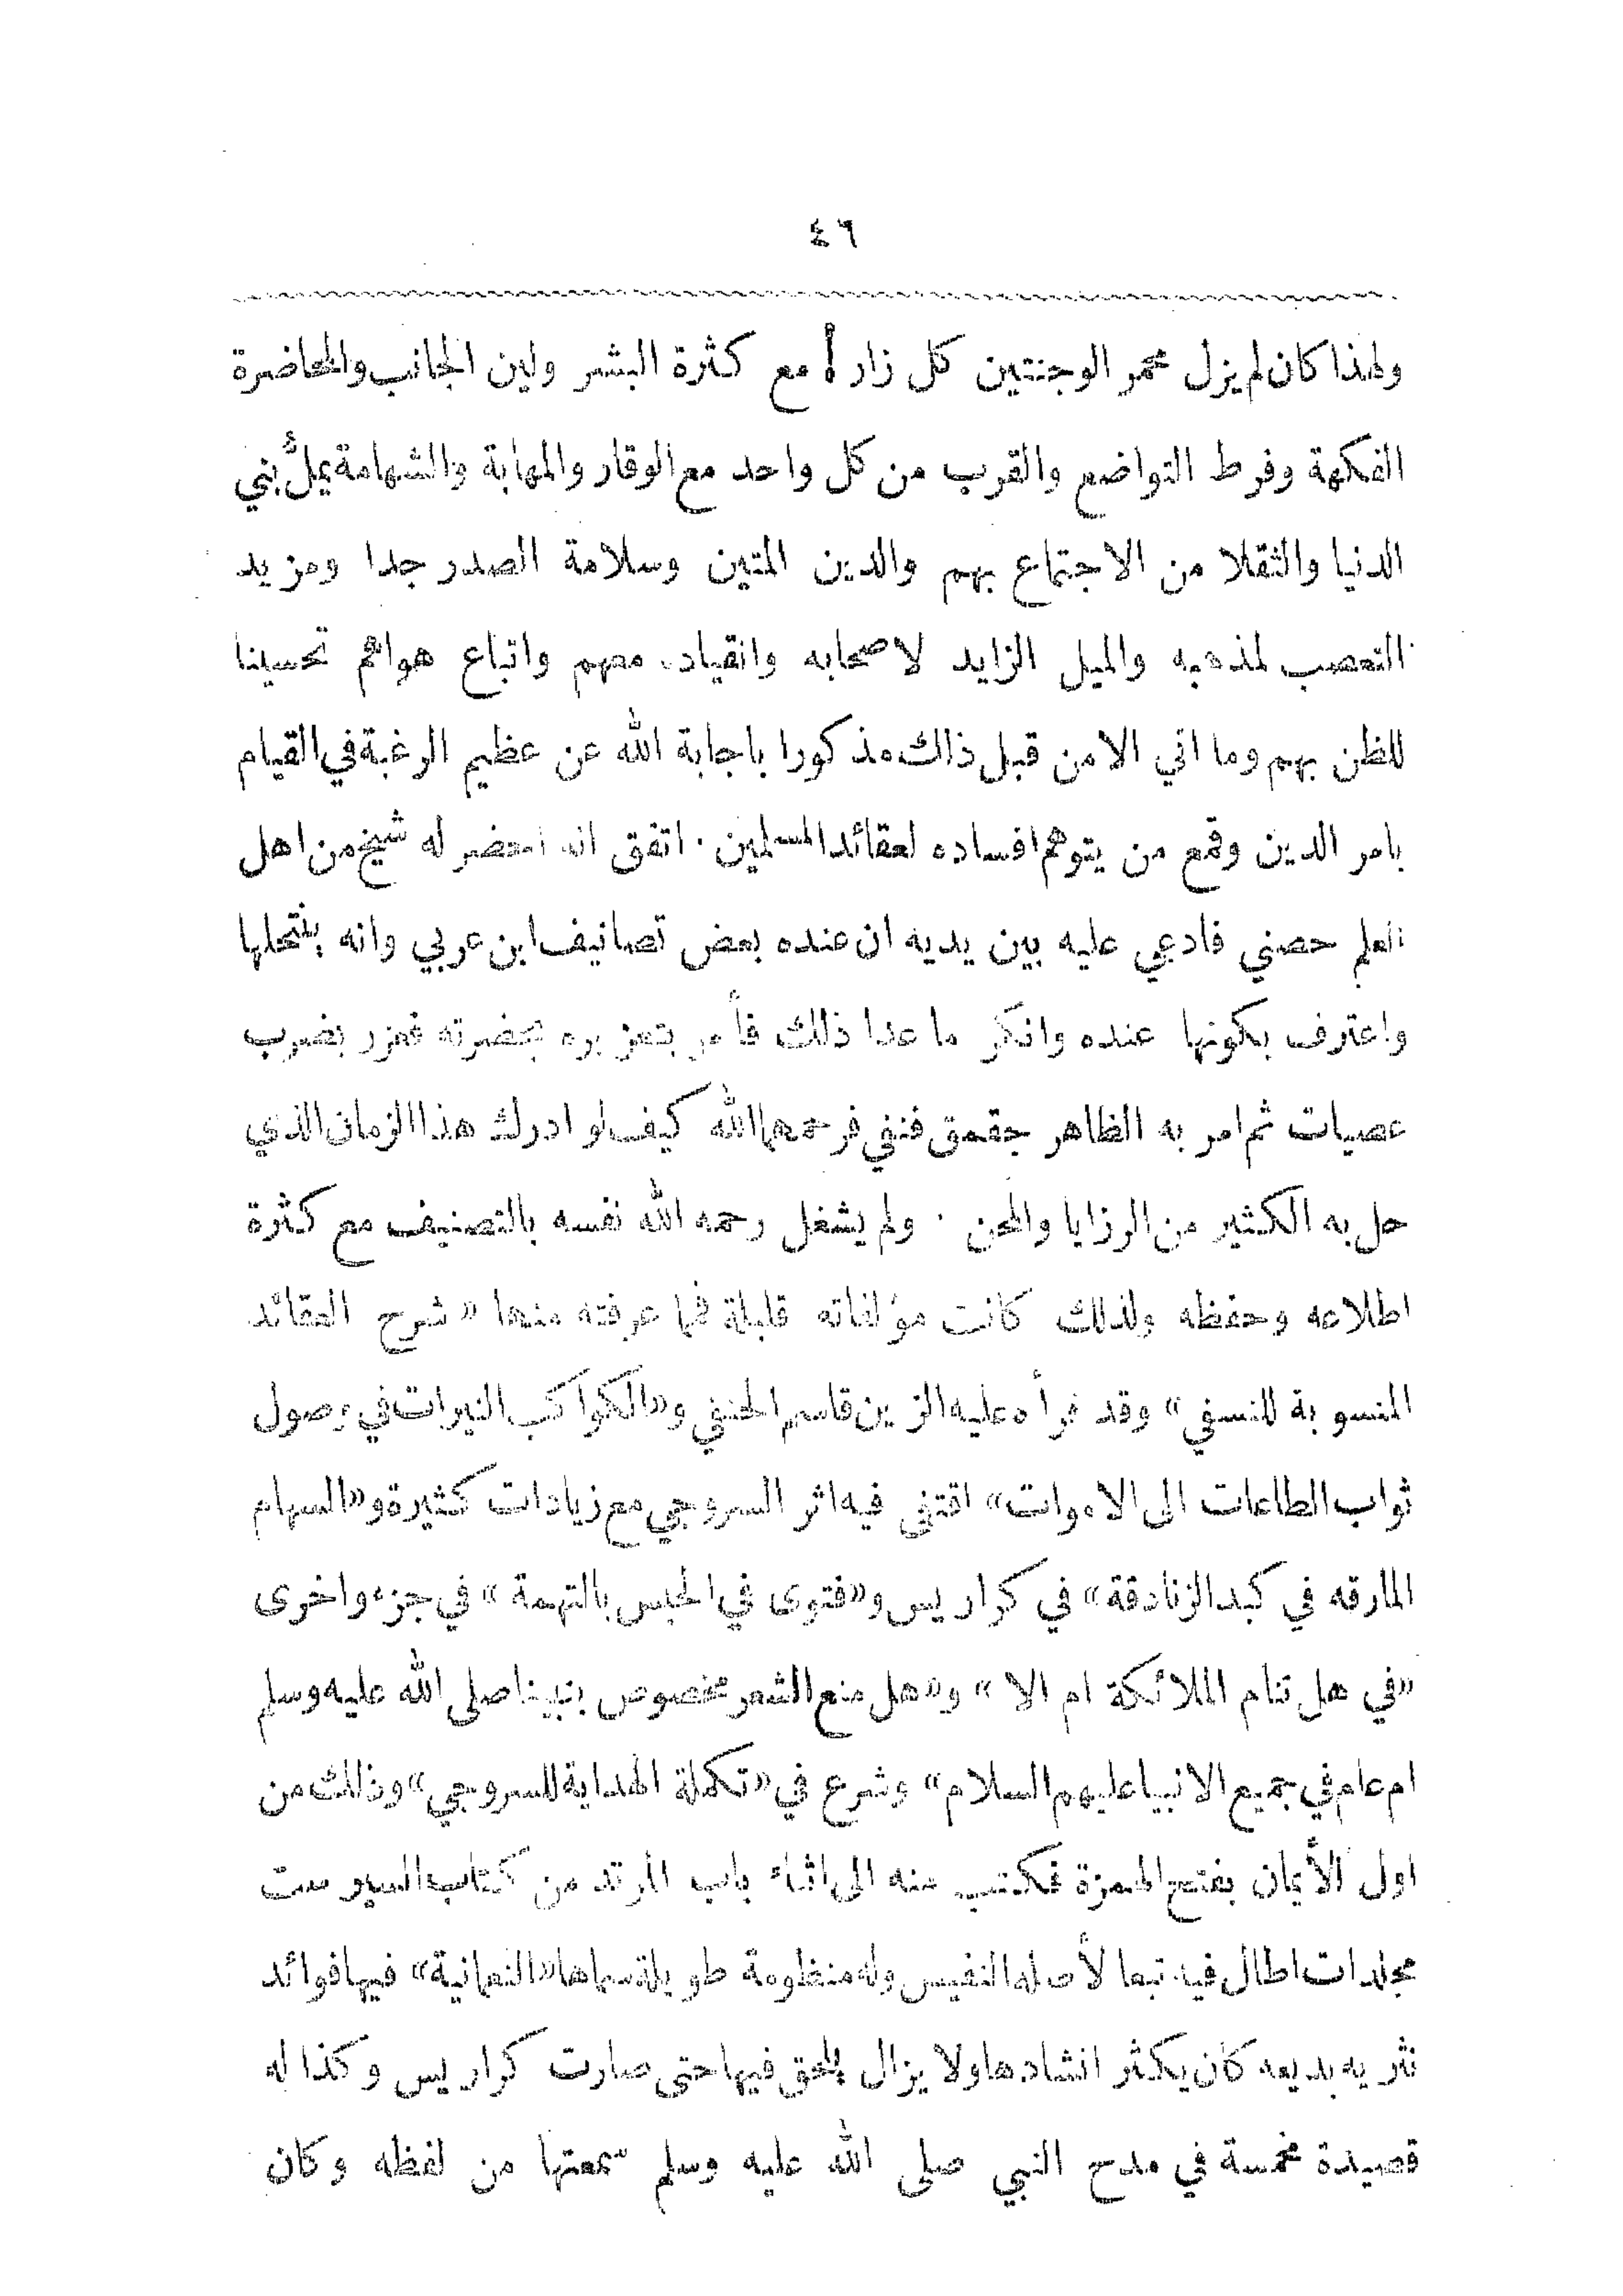 ٤٦
ولهذا كان لم يزل محمر الوجنتين كل زار أ مع كثرة البشر ولين الجانب والمحاضرة
الفكهة وفرط التواضع والقرب من كل واحد مع الوقار والمهابة والشهامة بملّ بني
الدنيا والثقلا من الاجتماع بهم والدين المتين وسلامة الصدر جدا ومزيد
التعصب لمذهبه والميل الزايد لاصحابه وانقياده معهم واتباع هواهم تحسينا
للظن بهم وما اتي الا من قبل ذالك مذكورا باجابة الله عن عظيم الرغبة في القيام
بامر الدين وقمع من يتوهم افساده لعقائد المسلمين · اتفق انه احضر له شيخ من اهل
العلم حصني فادعي عليه بين يديه ان عنده بعض تصانيف ابن عربي وانه ينتحلها
واعترف بكونها عنده وانكر ما عدا ذلك فأمر بتعزيره بحضرته فعزر بضرب
عصيات ثم امر به الظاهر جقمق فنفي فرحمهما الله كيف لو ادرك هذا الزمان الذي
حل به الكثير من الرزايا والمحن · ولم يشغل رحمه الله نفسه بالتصنيف مع كثرة
اطلاعه وحفظه ولذلك كانت مؤلفاته قليلة فما عرفته منها «شرح العقائد
المنسوبة للنسفي» وقد قرأه عليه الزين قاسم الحنفي و«الكواكب النيرات في وصول
ثواب الطاعات الى الاموات» اقتفى فيه اثر السروجي مع زيادات كثيرة و«السهام
المارقه في كبد الزنادقة» في كراريس و«فتوى في الحبس بالتهمة» في جزء واخرى
«في هل تنام الملائكة ام الا» و«هل منع الشعر مخصوص بنبينا صلى الله عليه وسلم
ام عام في جميع الانبيا عليهم السلام» وشرع في «تكملة الهداية للسروجي» وذلك من
اول الأيمان بفتح الهمزة فكتب منه الى اثناء باب المرتد من كتاب السير ست
مجلدات اطال فيه تبعا لأصله النفيس وله منظومة طويلة سماها «النعمانية» فيها فوائد
نثريه بديعه كان يكثر انشادها ولا يزال يلحق فيها حتى صارت كراريس وكذا له
قصيدة مخمسة في مدح النبي صلى الله عليه وسلم سمعتها من لفظه وكان